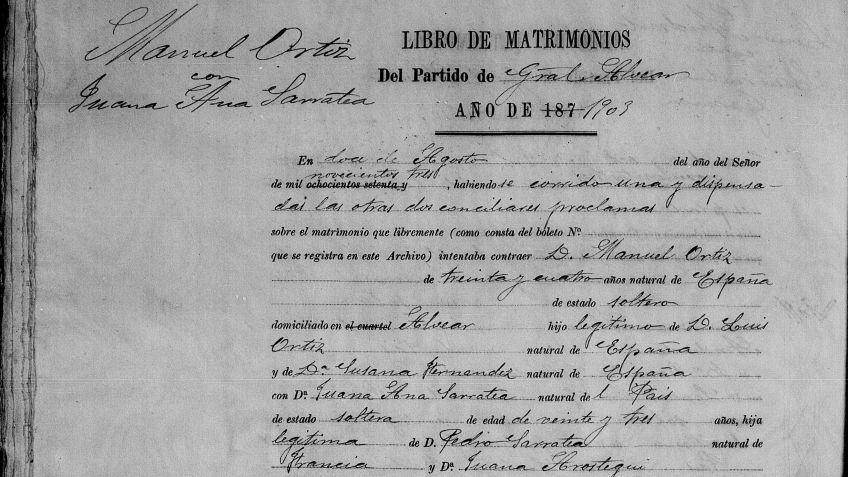 Manuel Ortiz
con
Juana Ana Sarratea
LIBRO DE MATRIMONIOS
Del Partido de Gral. Alvear
AÑO DE 187 1903
En doce de Agosto del año del Señor
novecientos tres
de mil ochocientos setenta y , habiendose corrido una y dispensa-
das las otras dos conciliares proclamas
sobre el matrimonio que libremente (como consta del boleto Nº
que se registra en este Archivo) intentaba contraer D. Manuel Ortiz
de treinta y cuatro años natural de España
de estado soltero
domiciliado en el cuartel Alvear hijo legitimo de D. Luis
Ortiz natural de España
y de Dª Susana Hernandez natural de España
con Dª Juana Ana Sarratea natural del Pais
de estado soltera de edad de veinte y tres años, hija
legitima de D. Pedro Sarratea natural de
Francia y Dª Juana Arostegui